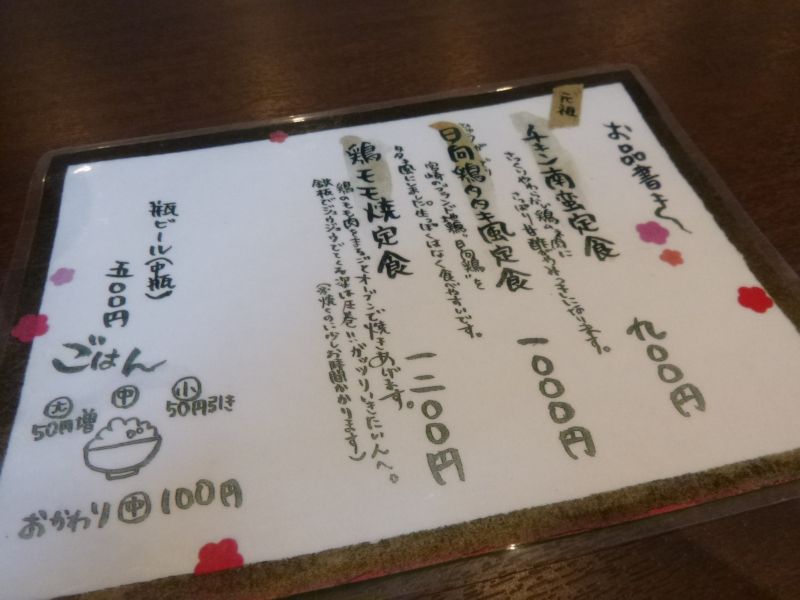 お品書き
元祖
チキン南蛮定食
さっくりやわらかい鶏の肉に
さっぱり甘酢が
九〇〇円
日向鶏タタキ風定食
宮崎のブランド地鶏、"日向鶏"を
タタキ風に。生っぽくはなく食べやすいです。
一〇〇〇円
鶏モモ焼定食
鶏のもも肉をまるごとオーブンで焼きあげます。
鉄板でジュウジュウでてくる姿は圧巻!!ガッツリいきたい人へ。
(※焼くのに少しお時間かかります!)
一二〇〇円
瓶ビール(中瓶)
五〇〇円
ごはん
大 中 小
50円増 50円引き
おかわり 中 100円